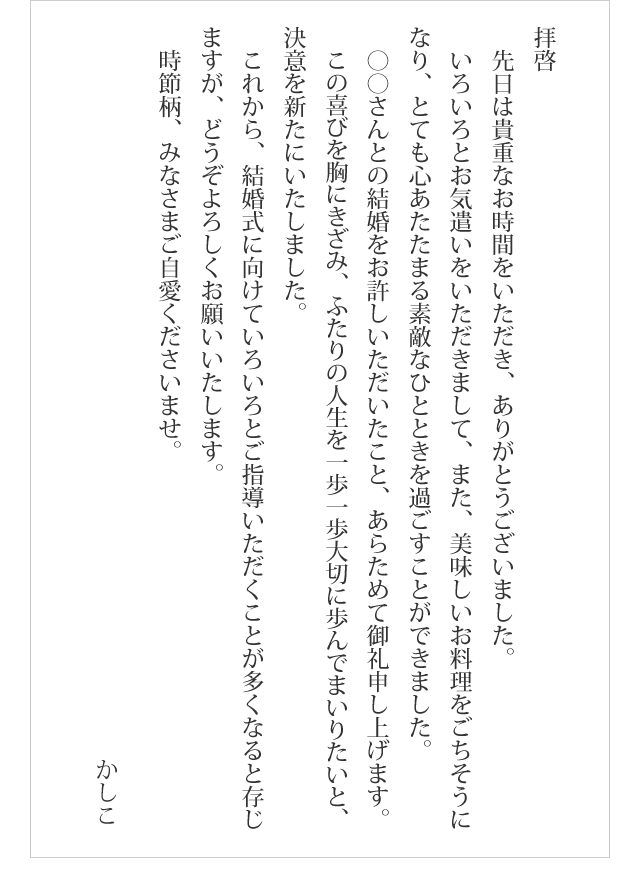 拝啓
先日は貴重なお時間をいただき、ありがとうございました。
いろいろとお気遣いをいただきまして、また、美味しいお料理をごちそうに
なり、とても心あたたまる素敵なひとときを過ごすことができました。
〇〇さんとの結婚をお許しいただいたこと、あらためて御礼申し上げます。
この喜びを胸にきざみ、ふたりの人生を一歩一歩大切に歩んでまいりたいと、
決意を新たにいたしました。
これから、結婚式に向けていろいろとご指導いただくことが多くなると存じ
ますが、どうぞよろしくお願いいたします。
時節柄、みなさまご自愛くださいませ。
かしこ